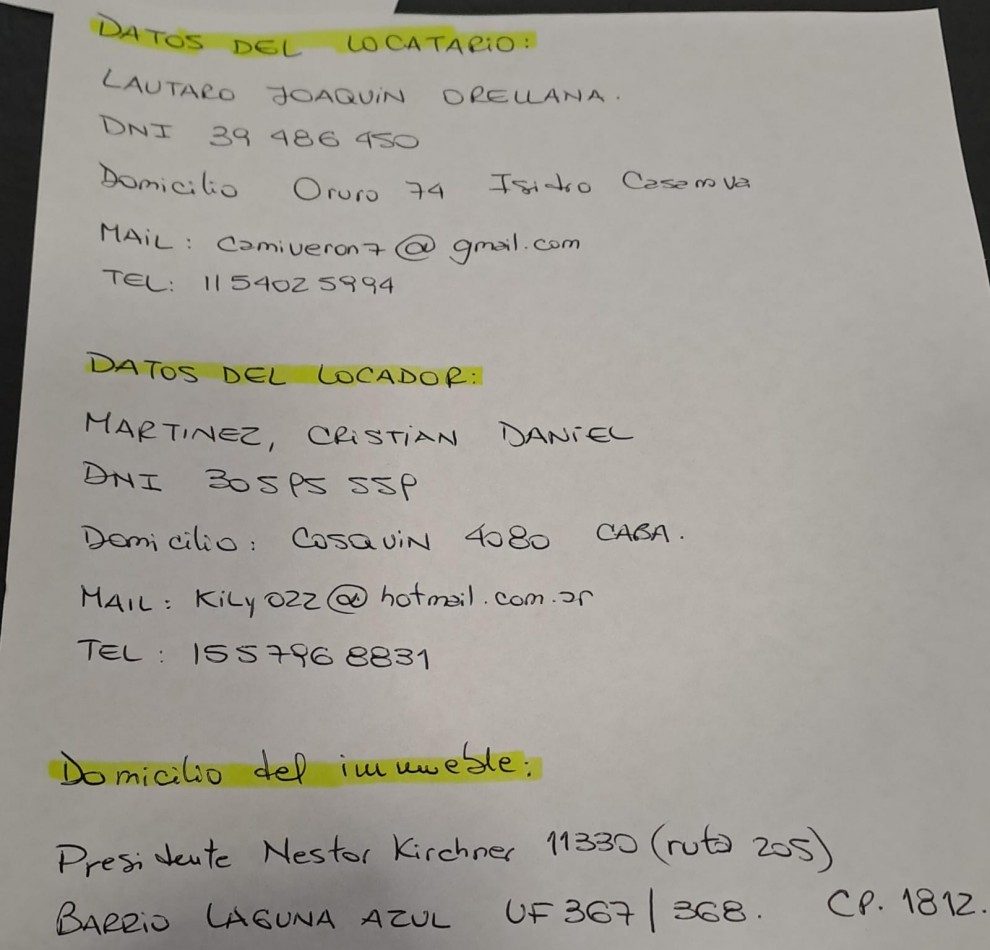 DATOS DEL LOCATARIO:
LAUTARO JOAQUIN ORELLANA.
DNI 39 486 450
Domicilio Oruro 74 Isidro Casanova
MAIL: camiveron7@gmail.com
TEL: 1154025994
DATOS DEL LOCADOR:
MARTINEZ, CRISTIAN DANIEL
DNI
Domicilio: COSQUIN 4080 CABA.
MAIL: Kily022@hotmail.com.ar
TEL: 1557968831
Domicilio del inmueble:
Presidente Nestor Kirchner 11330 (ruta 205)
BARRIO LAGUNA AZUL UF 367/368. CP. 1812.